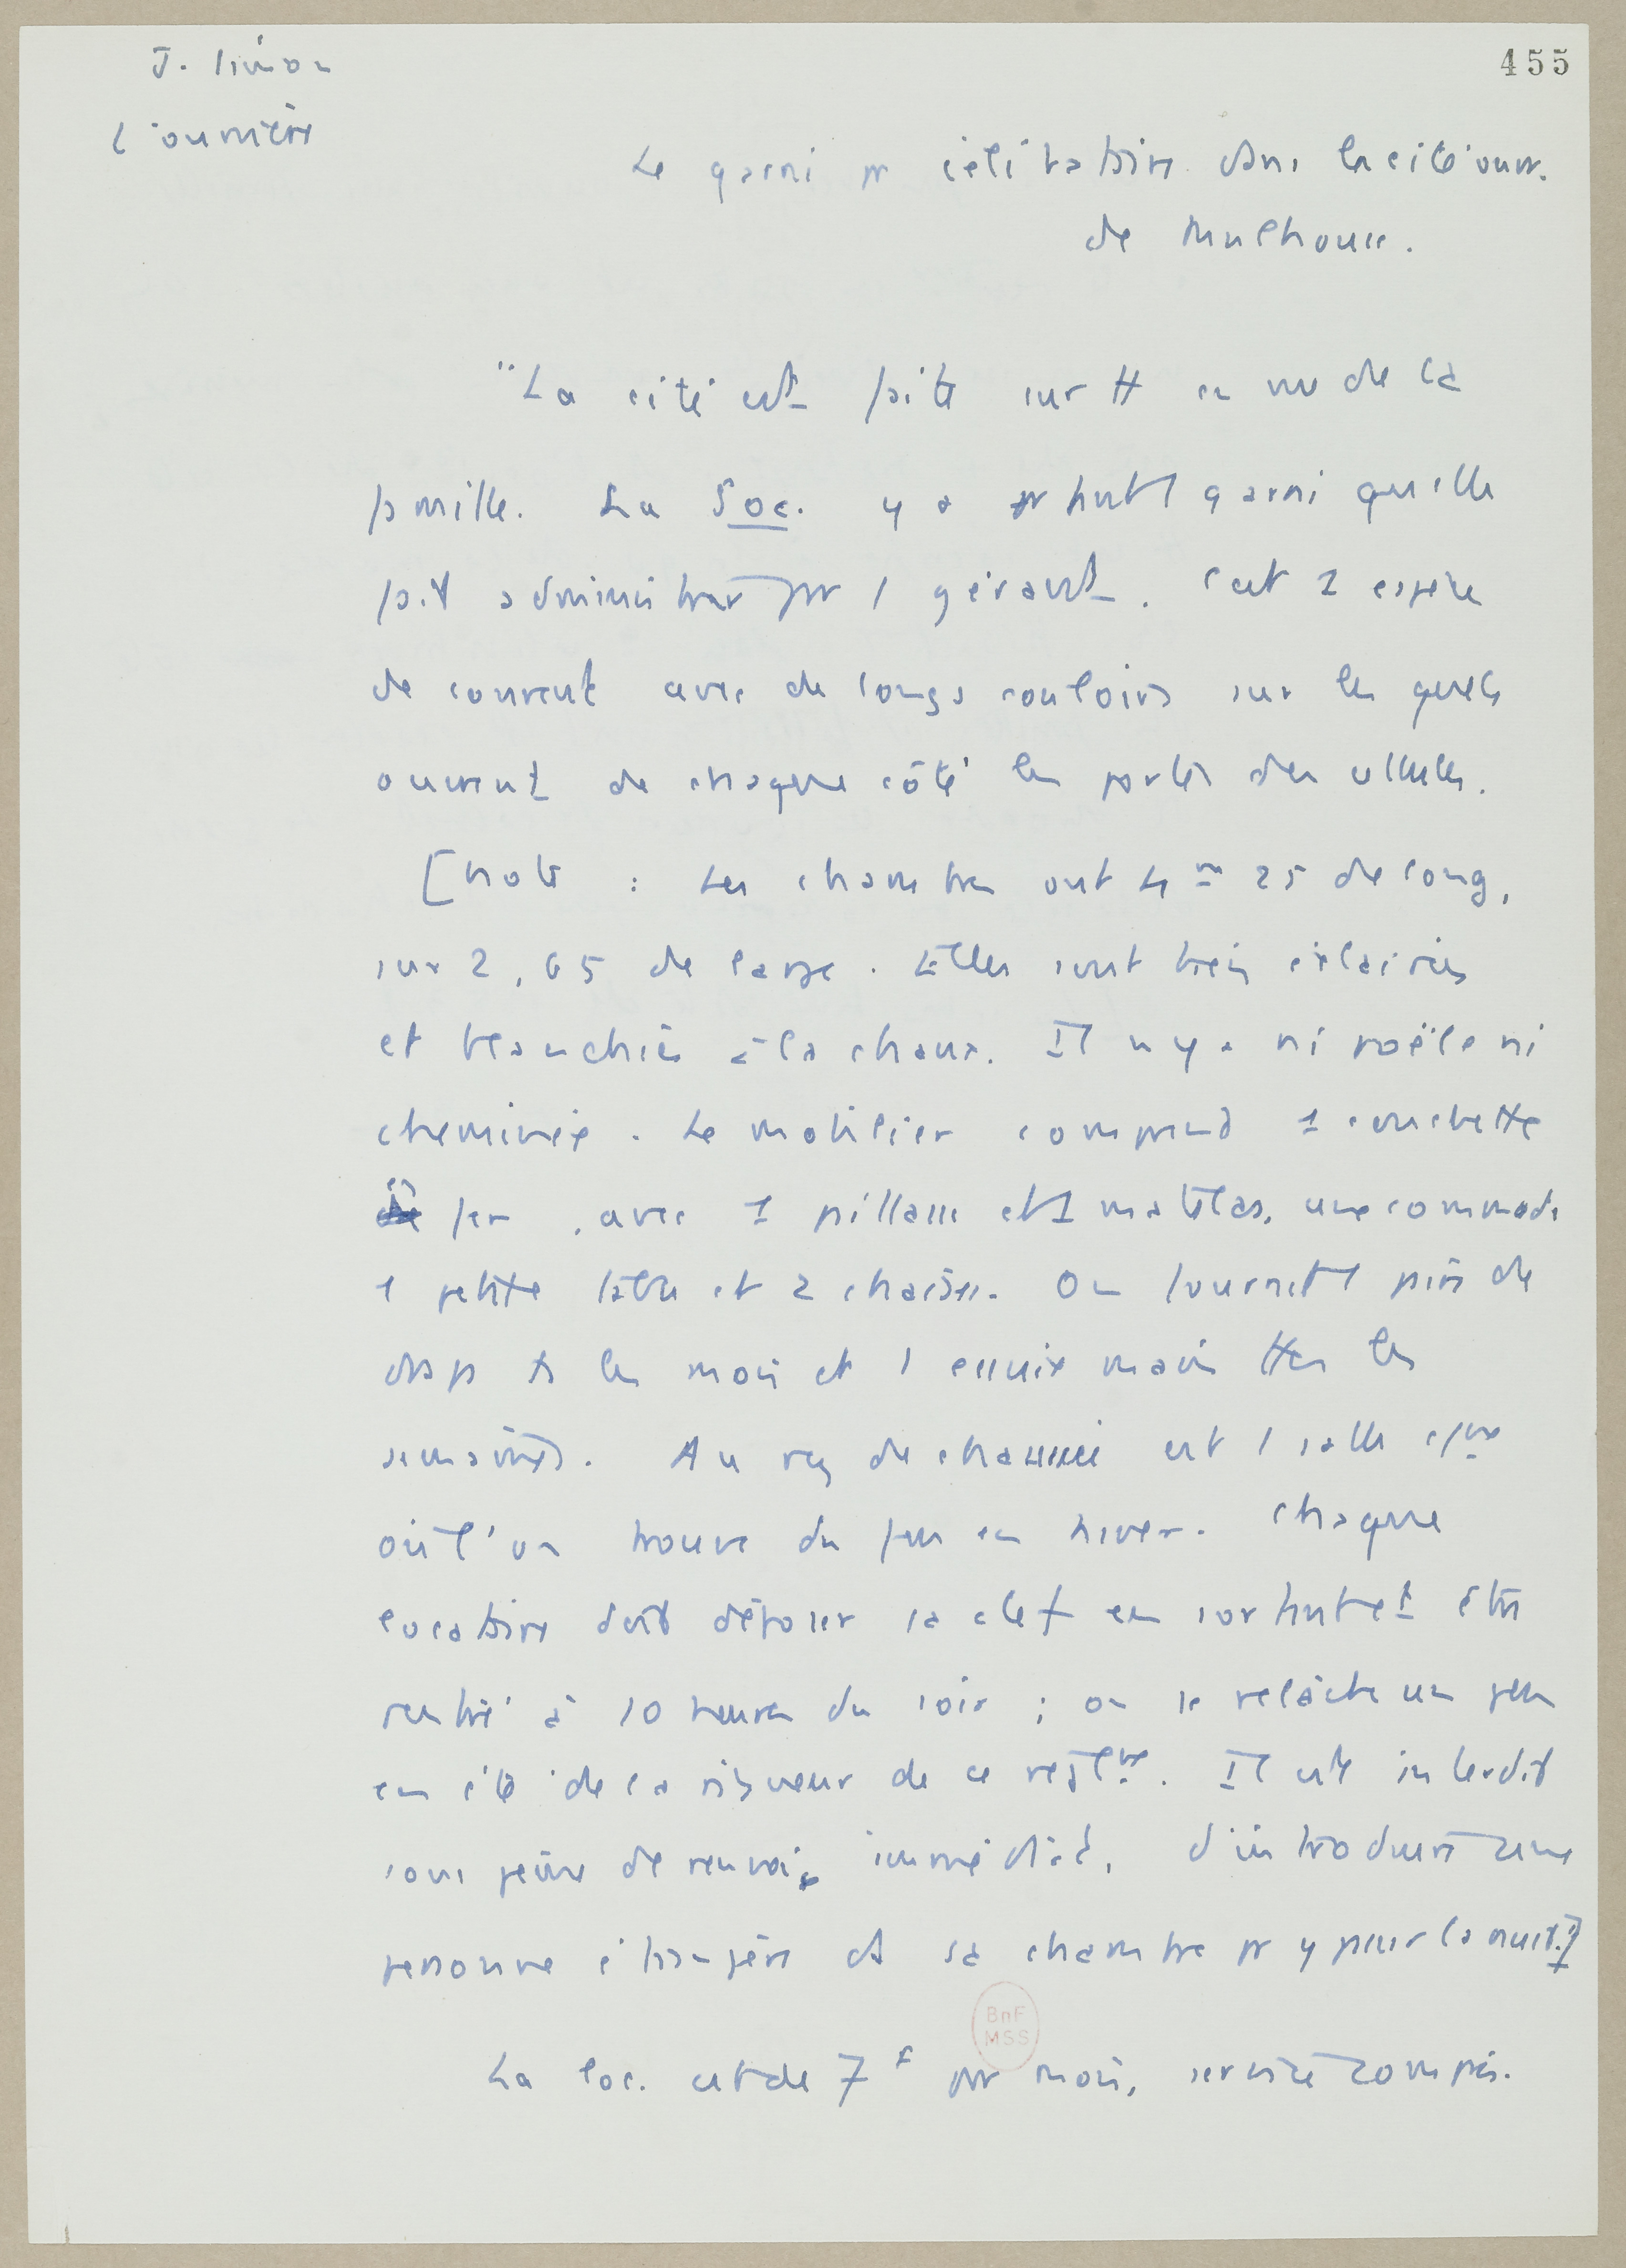 J. Simon
L'ouvrière
455
Le garni pr célibataire dans la cité ouvr.
de Mulhouse.
"La cité est faite surtt en vue de la
famille. La Soc. y a pourtt 1 garni qu'elle
fait administrer par 1 gérant. C'est 1 espèce
de couvent avec de longs couloirs sur lesquels
ouvrent de chaque côté les portes des cellules.
[Note : Les chambres ont 4 m 25 de long,
sur 2,65 de large. Elles sont bien éclairées
et blanchies à la chaux. Il n'y a ni poële ni
cheminée. Le mobilier comprend 1 couchette
en fer, avec 1 paillasse et 1 matelas, une commode
1 petite table et 2 chaises. On fournit 1 paire de
draps ts les mois et 1 essuie main ttes les
semaines. Au rez de chaussée est 1 salle
où l'on trouve du feu en hiver. Chaque
locataire doit déposer sa clef en sortant et être
rentré à 10 heures du soir ; on se relâche un peu
en été de la rigueur de ce reglt. Il est interdit
sous peine de renvoi immédiat, d'introduire une
personne étrangère ds sa chambre pr y passer la nuit.]
BnF
MSS
La loc. est de 7 f par mois, service compris.